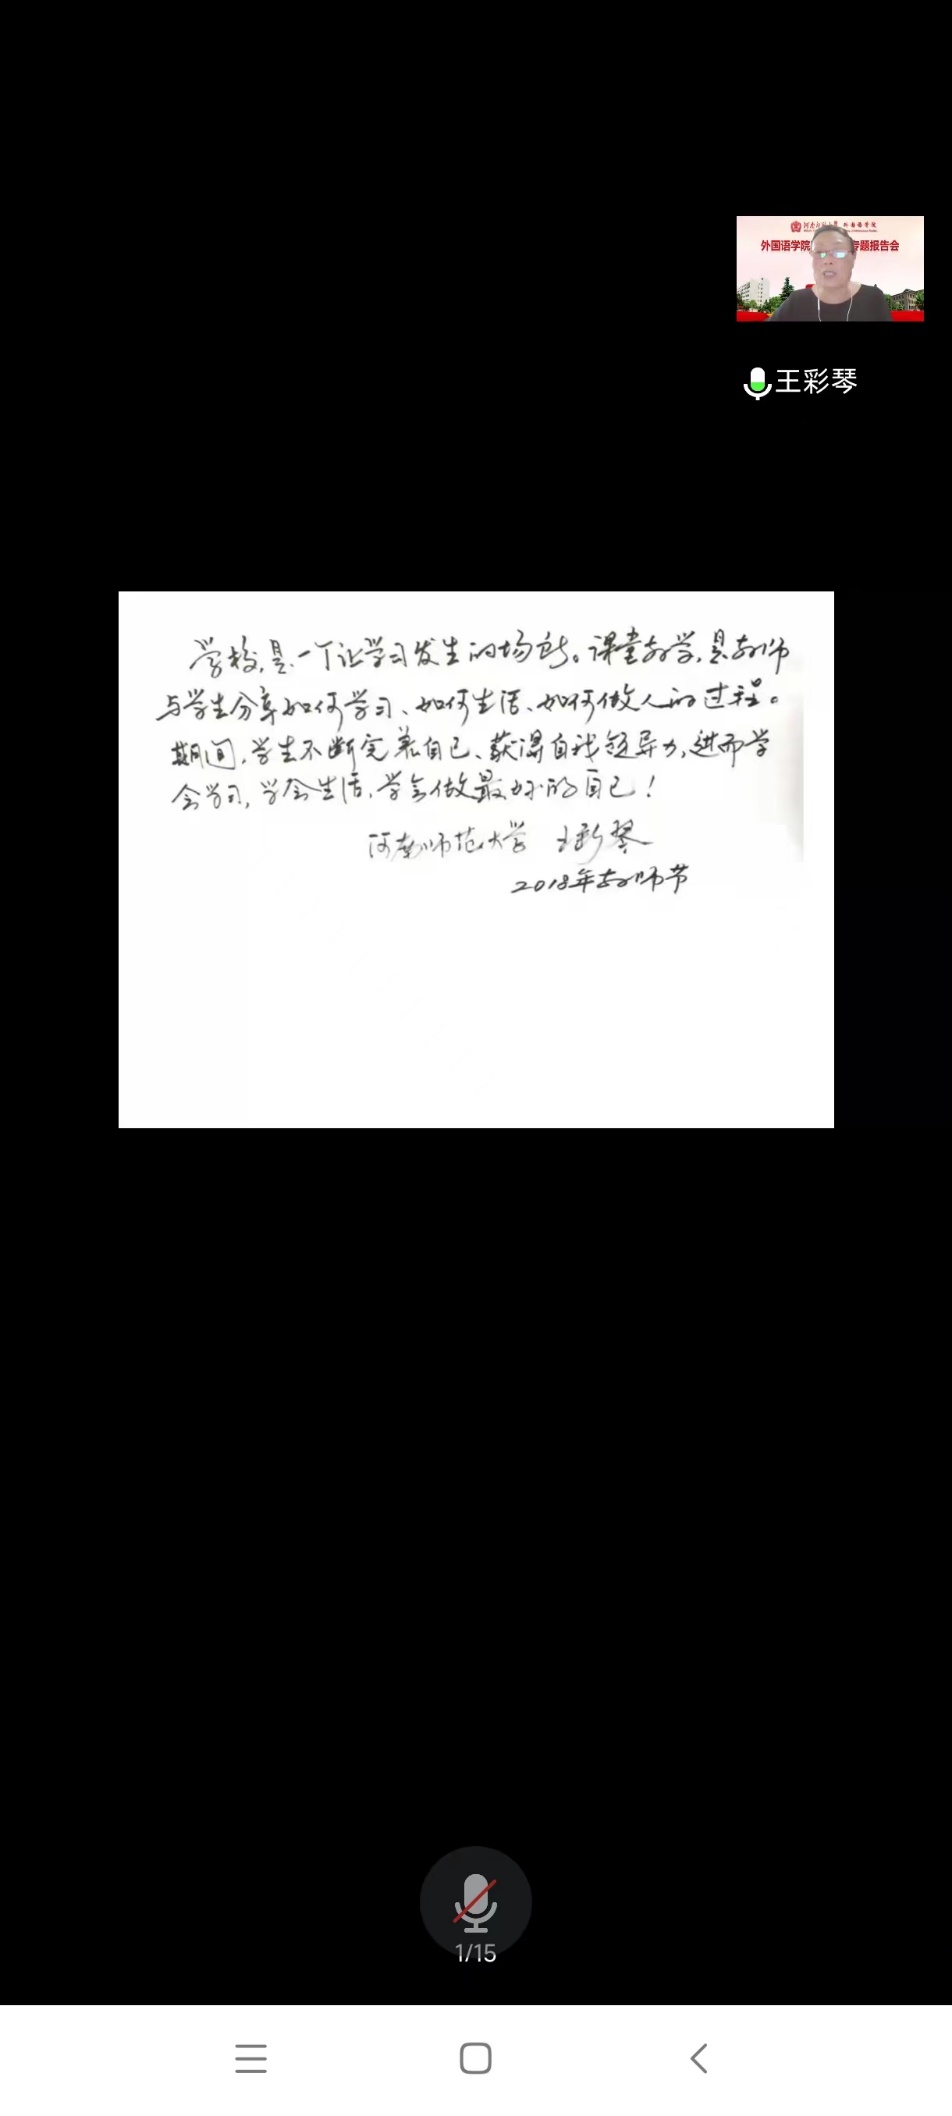 外国语学院
专题报告会
王彩琴
学校,是一个让学习发生的场所。课堂教学,是教师
与学生分享如何学习、如何生活、如何做人的过程。
期间,学生不断完善自己、获得自我领导力,进而学
会学习,学会生活,学会做最好的自己!
河南师范大学 王彩琴
2018年教师节
1/15